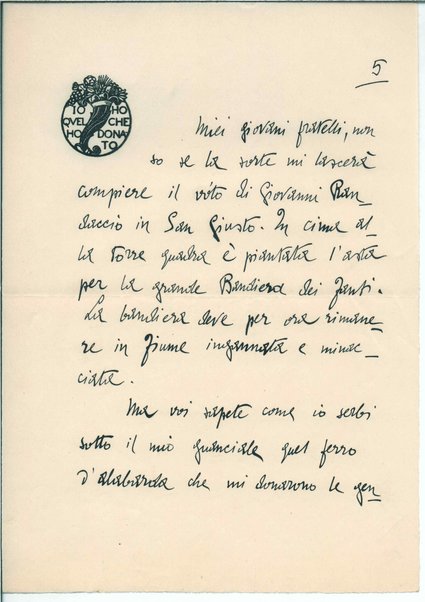 5
IO HO
QVEL CHE
HO DONA
TO
Miei giovani fratelli, non
so se la sorte mi lascerà
compiere il vóto di Giovanni Ran_
daccio in San Giusto. In cima al_
la Torre quadra è piantata l'asta
per la grande Bandiera dei Fanti.
La bandiera deve per ora rimane_
re in Fiume ingannata e minac_
ciata.
Ma voi sapete come io serbi
sotto il mio guanciale quel ferro
d'alabarda che mi donarono le gen_